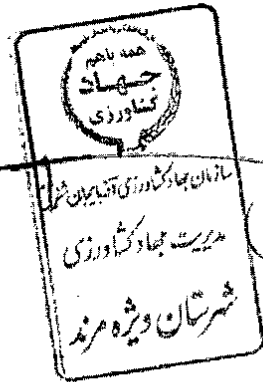 همه باهم
جهاد
کشاورزی
سازمان جهاد کشاورزی آذربایجان شرقی
مدیریت جهاد کشاورزی
شهرستان ویژه مرند